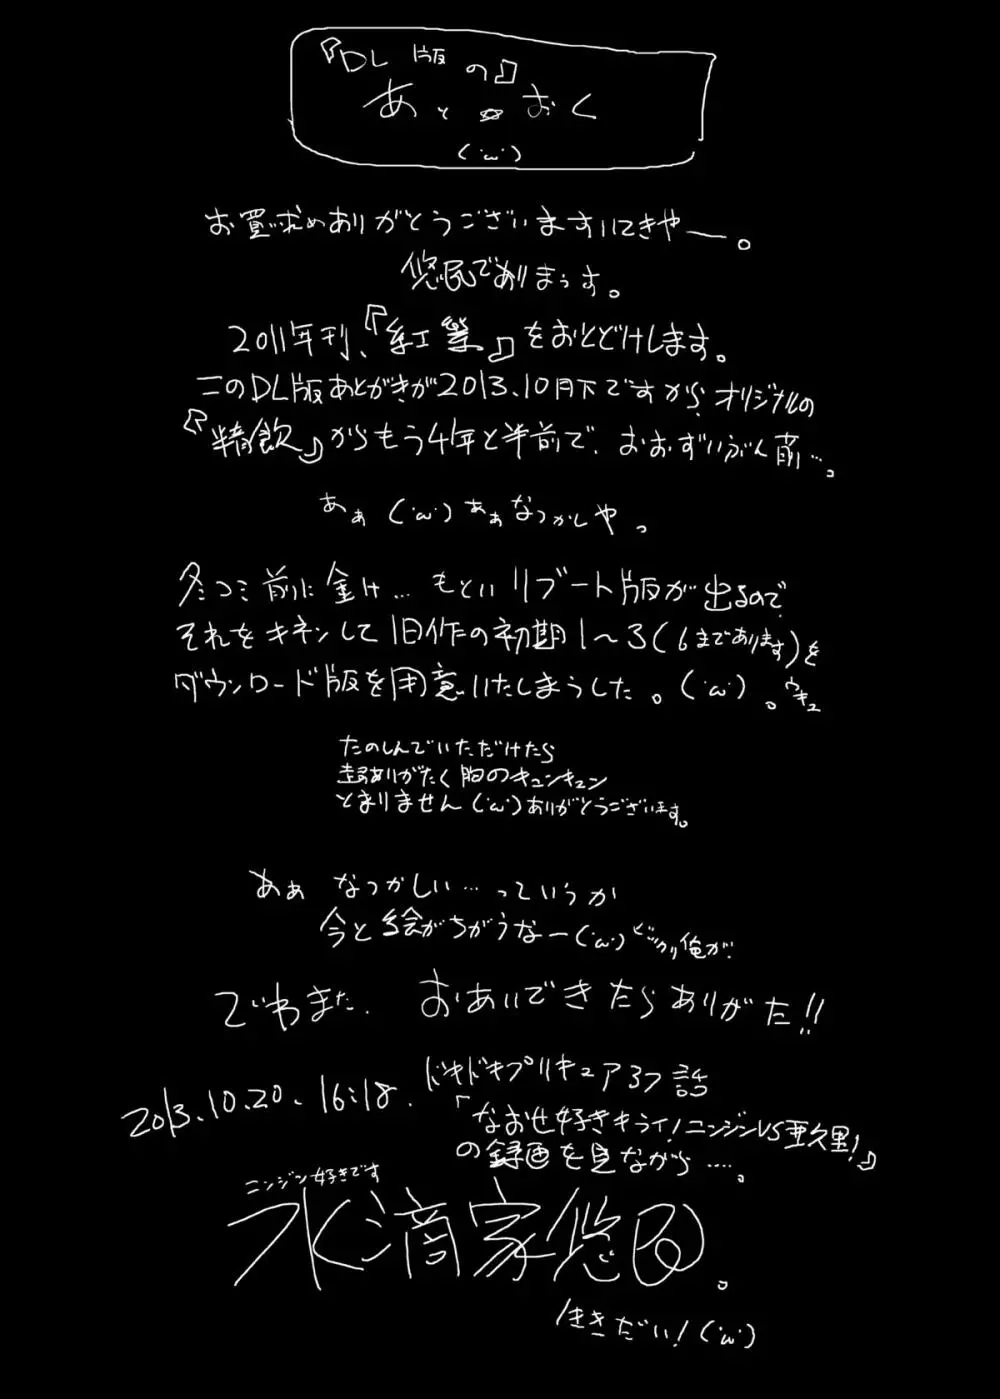 『DL版の』
あと☆おく
(・ω・)
お買求めありがとうございますいてきやー。
悠民でありまぅす。
2011年刊、『紅業』をおとどけします。
このDL版あとがきが2013.10月下ですから、オリジナルの
『精飲』からもう4年と半前で、おおずいぶん前…。
あぁ(・ω・)あぁなつかしや。
冬コミ前に金け…もといリブート版が出るので
それをキネンして旧作の初期1〜3(6まであります)を
ダウンロード版を用意いたしまうした。(・ω・)。ウキュ
たのしんでいただけたら
ありがたく胸のキュンキュン
とまりません(・ω・)ありがとうございます。
あぁ なつかしい…っていうか
今と絵がちがうなー(・ω・)ビックリ俺が!
でわまた、おあいできたらありがた!!
2013.10.20、16:18、ドキドキプリキュア37話
「なおせ好きキライ!ニンジンVS亜久里!」
の録画を見ながら…。
ニンジン好きです
水滴家悠民。
生きだい!(・ω・)